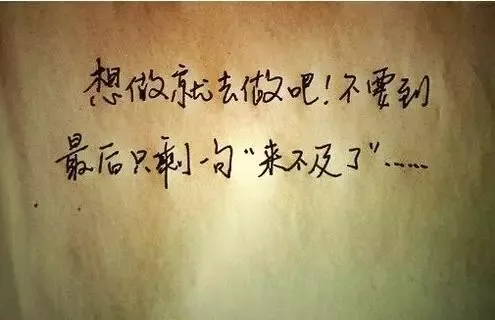 想做就去做吧！不要到
最后只剩一句“来不及了”……